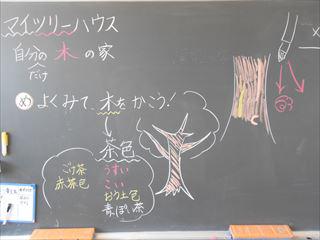 マイツリーハウス
自分の木の家
だけ
め よくみて、木をかこう!
茶色
うすい
こい
おうど色
青っぽい茶
こげ茶
赤茶色